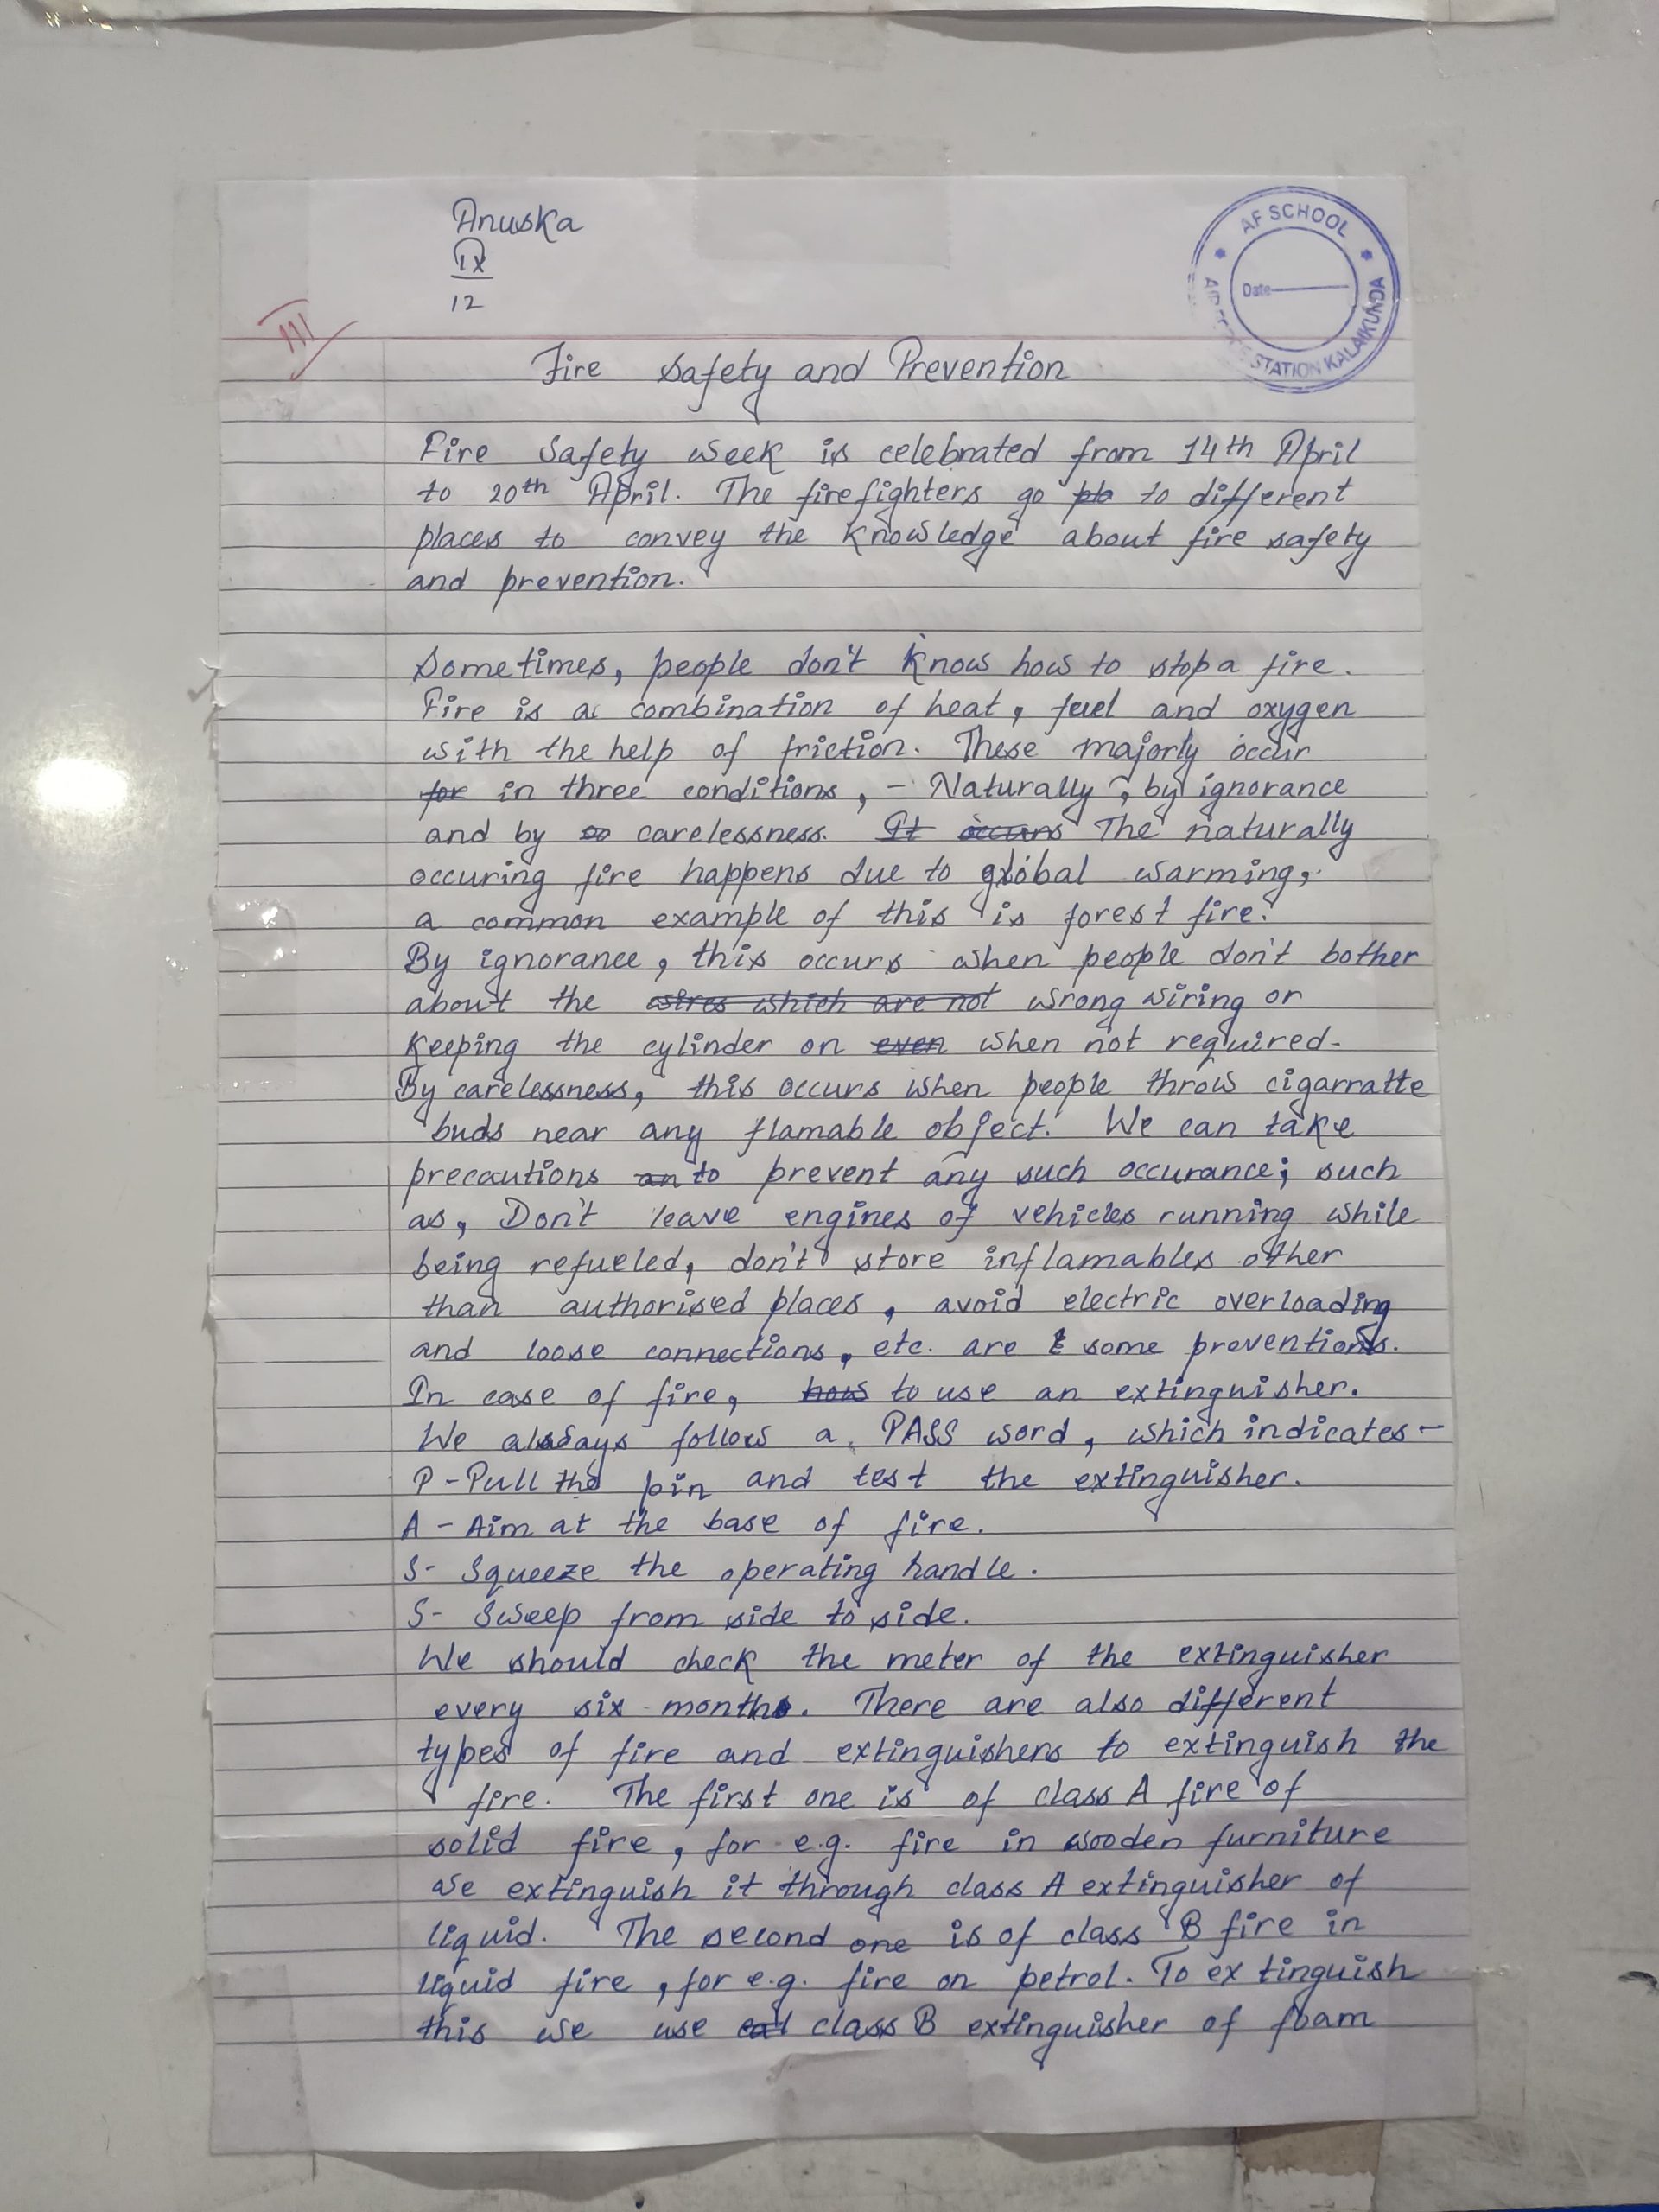 Anuska
IX
12
III
AF SCHOOL
Date
STATION KALAIKUNDA
Fire Safety and Prevention
Fire Safety week is celebrated from 14th April
to 20th April. The firefighters go to different
places to convey the knowledge about fire safety
and prevention.
Sometimes, people don't know how to stop a fire.
Fire is a combination of heat, fuel and oxygen
with the help of friction. These majorly occur
for in three conditions, - Naturally, by ignorance
and by so carelessness. It occurs The naturally
occuring fire happens due to global warming,
a common example of this is forest fire.
By ignorance, this occurs when people don't bother
about the wires which are not wrong wiring or
keeping the cylinder on even when not required.
By carelessness, this occurs when people throw cigarratte
buds near any flamable object. We can take
precautions an to prevent any such occurance; such
as, Don't leave engines of vehicles running while
being refueled, don't store inflamables other
than authorised places, avoid electric overloading
and loose connections, etc. are some preventions.
In case of fire, how to use an extinguisher.
We always follow a PASS word, which indicates -
P - Pull the pin and test the extinguisher.
A - Aim at the base of fire.
S - Squeeze the operating handle.
S - Sweep from side to side.
We should check the meter of the extinguisher
every six months. There are also different
types of fire and extinguishers to extinguish the
fire. The first one is of class A fire of
solid fire, for e.g. fire in wooden furniture
we extinguish it through class A extinguisher of
liquid. The second one is of class B fire in
liquid fire, for e.g. fire on petrol. To extinguish
this we use class B extinguisher of foam